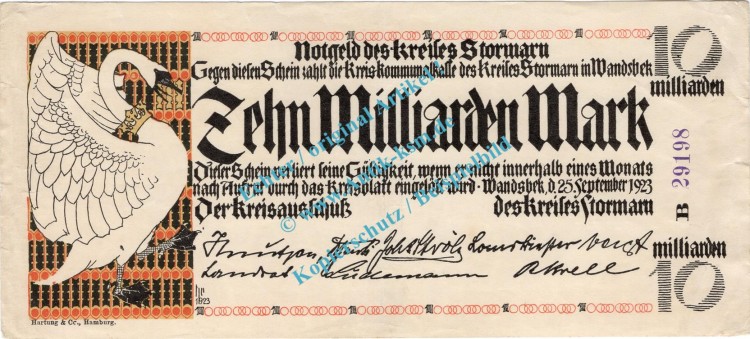 Notgeld des Kreises Stormarn
Gegen diesen Schein zahlt die Kreiskommunalkasse des Kreises Stormarn in Wandsbek
Zehn Milliarden Mark
Dieser Schein verliert seine Gültigkeit, wenn er nicht innerhalb eines Monats
nach Aufruf durch das Kreisblatt eingelöst wird · Wandsbek, d. 25 September 1923
Der Kreisausschuß des Kreises Stormarn
Knutzen
Landrat Lüdemann
10
milliarden
B 29198
milliarden
10
1923
Hartung & Co., Hamburg.
Echter / original Artikel
© www.knak-ksm.de
Kopierschutz / Beispielbild